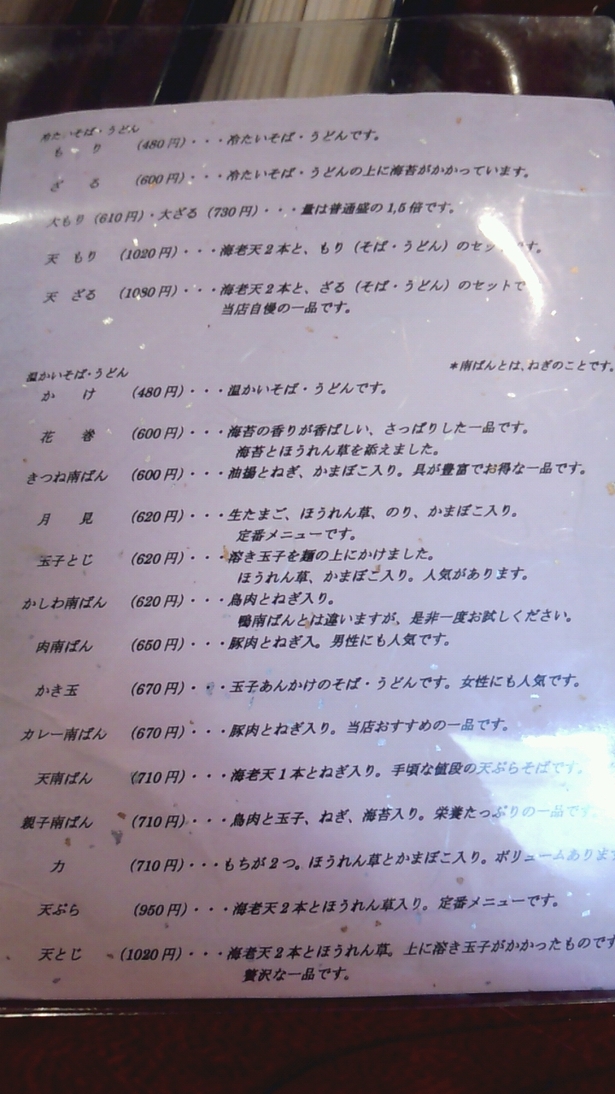 冷たいそば・うどん
もり (480円)・・・冷たいそば・うどんです。
ざる (600円)・・・冷たいそば・うどんの上に海苔がかかっています。
大もり (610円)・大ざる (730円)・・・量は普通盛の1,5倍です。
天もり (1020円)・・・海老天2本と、もり(そば・うどん)のセットです。
天ざる (1080円)・・・海老天2本と、ざる(そば・うどん)のセットで
当店自慢の一品です。
*南ばんとは、ねぎのことです。
温かいそば・うどん
かけ (480円)・・・温かいそば・うどんです。
花巻 (600円)・・・海苔の香りが香ばしい、さっぱりした一品です。
海苔とほうれん草を添えました。
きつね南ばん (600円)・・・油揚とねぎ、かまぼこ入り。具が豊富でお得な一品です。
月見 (620円)・・・生たまご、ほうれん草、のり、かまぼこ入り。
定番メニューです。
玉子とじ (620円)・・・溶き玉子を麺の上にかけました。
ほうれん草、かまぼこ入り。人気があります。
かしわ南ばん (620円)・・・鳥肉とねぎ入り。
鴨南ばんとは違いますが、是非一度お試しください。
肉南ばん (650円)・・・豚肉とねぎ入。男性にも人気です。
かき玉 (670円)・・・玉子あんかけのそば・うどんです。女性にも人気です。
カレー南ばん (670円)・・・豚肉とねぎ入り。当店おすすめの一品です。
天南ばん (710円)・・・海老天1本とねぎ入り。手頃な値段の天ぷらそばです。
親子南ばん (710円)・・・鳥肉と玉子、ねぎ、海苔入り。栄養たっぷりの一品です
力 (710円)・・・もちが2つ。ほうれん草とかまぼこ入り。ボリュームあります
天ぷら (950円)・・・海老天2本とほうれん草入り。定番メニューです。
天とじ (1020円)・・・海老天2本とほうれん草。上に溶き玉子がかかったものです
贅沢な一品です。